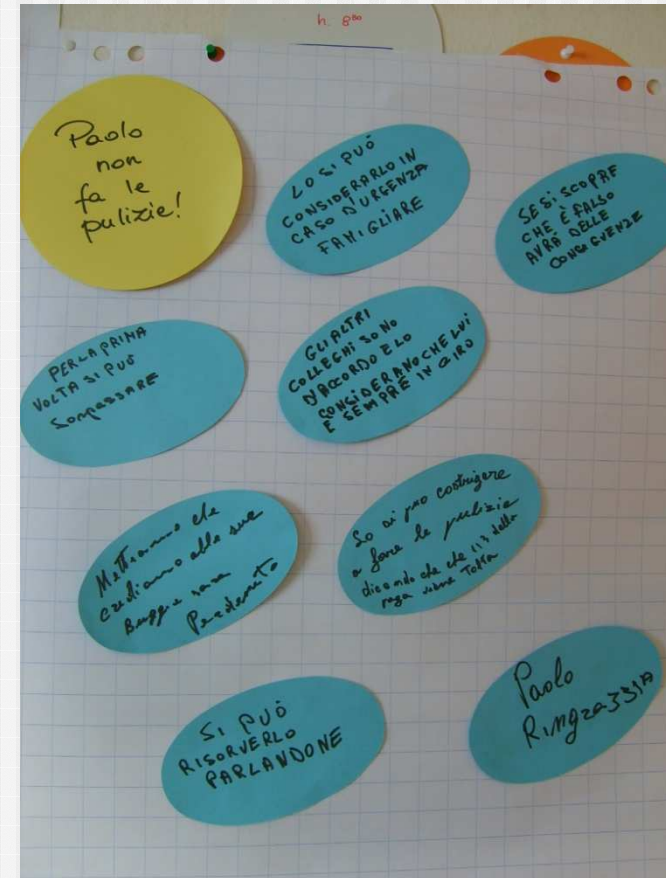 h. 8⁰⁰
Paolo
non
fa le
pulizie!
LO SI PUÒ
CONSIDERARLO IN
CASO D'URGENZA
FAMIGLIARE
SE SI SCOPRE
CHE È FALSO
AVRA DELLE
CONSEGUENZE
PER LA PRIMA
VOLTA SI PUÒ
SORPASSARE
GLI ALTRI
COLLEGHI SONO
D'ACCORDO E LO
CONSIDERANO CHE LUI
E SEMPRE IN GIRO
Mettiamo che
crediamo alle sue
Buggie sara
Perdonato
Lo si puo costrigere
a fare le pulizie
dicendo che che 1/3 della
paga viene Tolta
SI PUÒ
RISORVERLO
PARLANDONE
Paolo